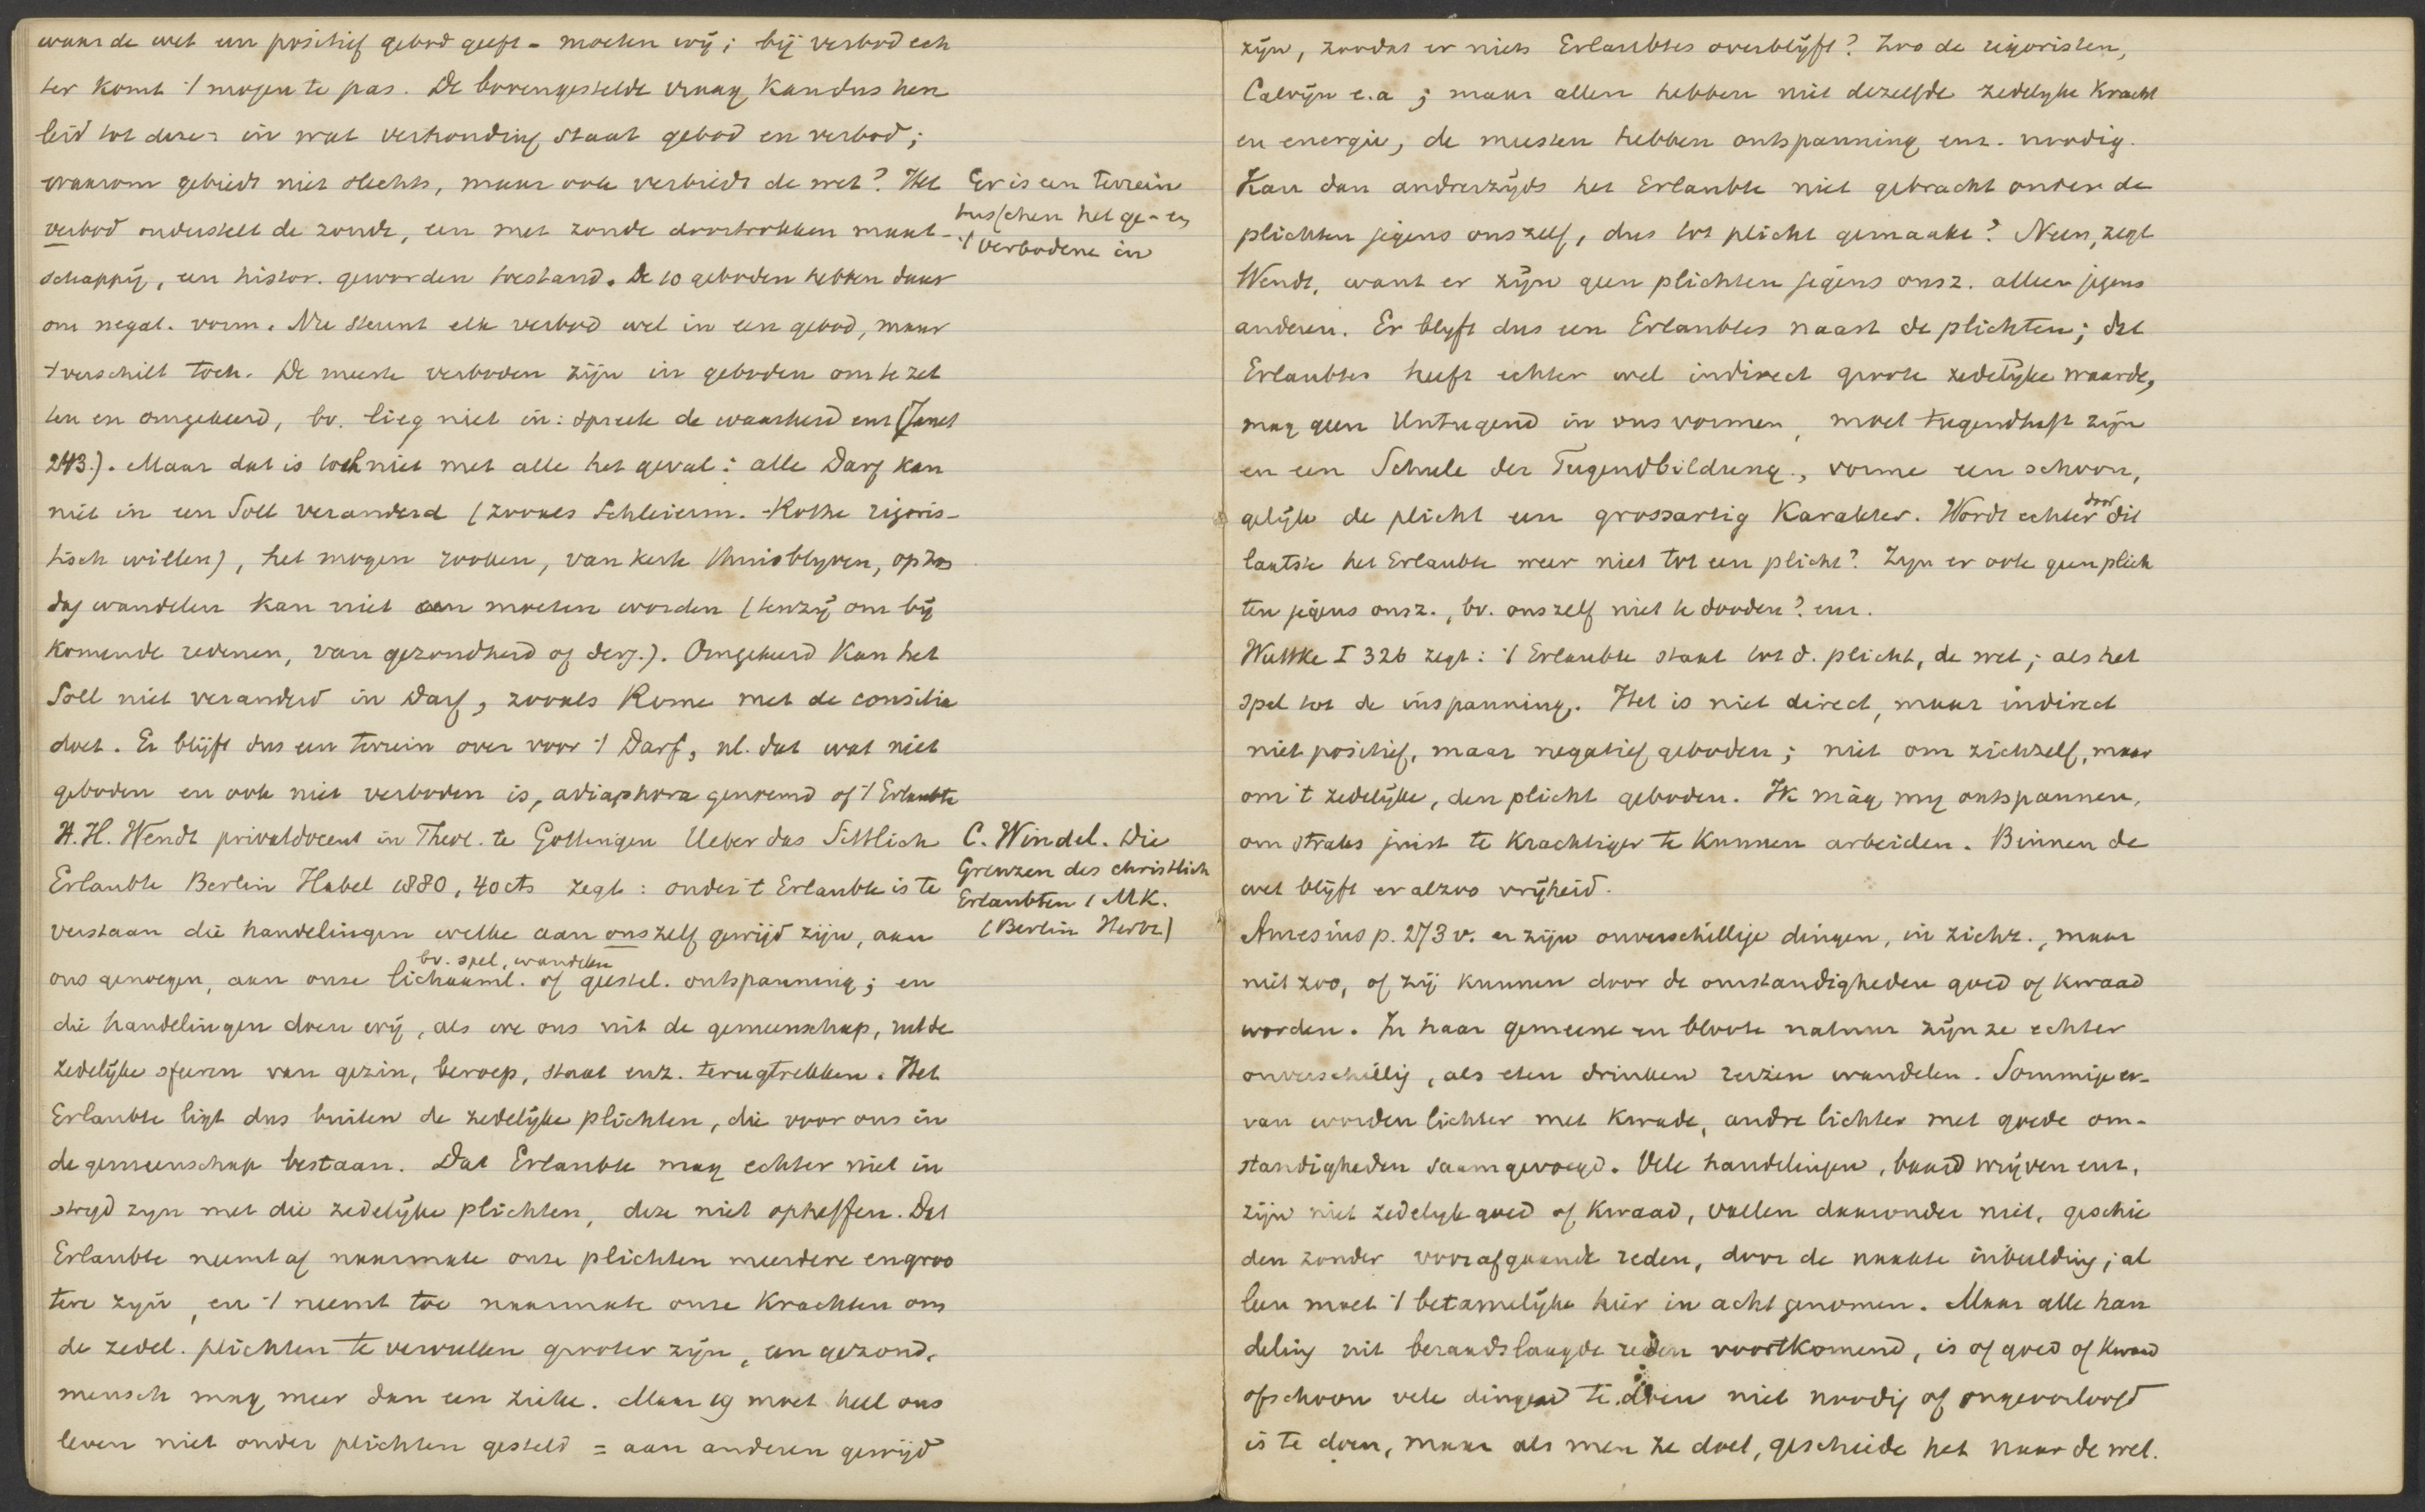 waar de wet een positief gebod geeft - moeten wij; bij verbod ech
ter komt 't mogen te pas. De bovengestelde vraag kan dus her
leid tot deze: in wat verhouding staat gebod en verbod;
waarom gebiedt niet slechts, maar ook verbiedt de wet? Het
verbod onderstelt de zonde, een met zonde doortrokken maat-
schappij, een histor. geworden toestand. De 10 geboden hebben daar
om negat. vorm. Nu steunt elk verbod wel in een gebod, maar
't verschilt toch. De meeste verboden zijn in geboden om te zet
ten en omgekeerd, bv. lieg niet in: spreek de waarheid enz (Janet
243.). Maar dat is toch niet met alle het geval: alle Darf kan
niet in een Soll veranderd (zooals Schleierm. - Rothe rigoris-
tisch willen), het mogen rooken, van kerk thuisblijven, op zon
dag wandelen kan niet een moeten worden (tenzij om bij
komende redenen, van gezondheid of derg.). Omgekeerd kan het
Soll niet veranderd in Darf, zooals Rome met de consilia
doet. Er blijft dus een terrein over voor 't Darf, nl. dat wat niet
geboden en ook niet verboden is, adiaphora genoemd of 't Erlaubte
H. H. Wendt privatdocent in Theol. te Gottingen Ueber das Sittlich
Erlaubte Berlin Habel 1880, 40 cts zegt: onder 't Erlaubte is te
verstaan die handelingen welke aan onszelf gewijd zijn, aan
bv. spel, wandelen
ons genoegen, aan onze lichaaml. of geestel. ontspanning; en
die handelingen doen wij, als we ons uit de gemeenschap, uit de
zedelijke sferen van gezin, beroep, staat enz. terugtrekken. Het
Erlaubte ligt dus buiten de zedelijke plichten, die voor ons in
de gemeenschap bestaan. Dat Erlaubte mag echter niet in
strijd zijn met die zedelijke plichten, deze niet opheffen. Dat
Erlaubte neemt af naarmate onze plichten meerdere en groo
tere zijn, en 't neemt toe naarmate onze krachten om
de zedel. plichten te vervullen grooter zijn, een gezond.
mensch mag meer dan een zieke. Maar moet heel ons
leven niet onder plichten gesteld = aan anderen gewijd
Er is een terrein
tusschen het ge- en
't verbodene in
C. Windel. Die
Grenzen des christlich
Erlaubten 1 MK.
(Berlin Herbz)
zijn, zoodat er niets Erlaubtes overblijft? Zoo de rigoristen,
Calvijn e.a; maar allen hebben niet dezelfde zedelijke kracht
en energie, de meesten hebben ontspanning enz. noodig.
Kan dan andrerzijds het Erlaubte niet gebracht onder de
plichten jegens onszelf, dus tot plicht gemaakt? Neen, zegt
Wendt, want er zijn geen plichten jegens onsz. alleen jegens
anderen. Er blijft dus een Erlaubtes naast de plichten; dat
Erlaubtes heeft echter wel indirect groote zedelijke waarde,
mag geen Untugend in ons vormen, moet tugendhaft zijn
en een Schule der Tugendbildung, vorme een schoon,
gelijk de plicht een grossartig karakter. Wordt echter door dit
laatste het Erlaubte weer niet tot een plicht? Zijn er ook geen plich
ten jegens onsz., bv. onszelf niet te dooden? enz.
Wuttke I 326 zegt: 't Erlaubte staat tot d. plicht, de wet; als het
spel tot de inspanning. Het is niet direct, maar indirect
niet positief, maar negatief geboden; niet om zichzelf, maar
om 't zedelijke, den plicht geboden. Ik màg mij ontspannen,
om straks juist te krachtiger te kunnen arbeiden. Binnen de
wet blijft er alzoo vrijheid.
Amesius p. 273 v. er zijn onverschillige dingen, in zichz., maar
niet zoo, of zij kunnen door de omstandigheden goed of kwaad
worden. In haar gemeene en bloote natuur zijn ze echter
onverschillig, als eten drinken reizen wandelen. Sommige er-
van worden lichter met kwade, andre lichter met goede om-
standigheden saamgevoegd. Vele handelingen, baard wrijven enz,
zijn niet zedelijk goed of kwaad, vallen daaronder niet, geschie
den zonder voorafgaande reden, door de naakte inbeelding; al
leen moet 't betamelijke hier in acht genomen. Maar alle han
deling uit beraadslaagde reden voortkomend, is of goed of kwaad
ofschoon vele dingen te doen niet noodig of ongeoorloofd
is te doen, maar als men ze doet, geschiede het naar de wet.